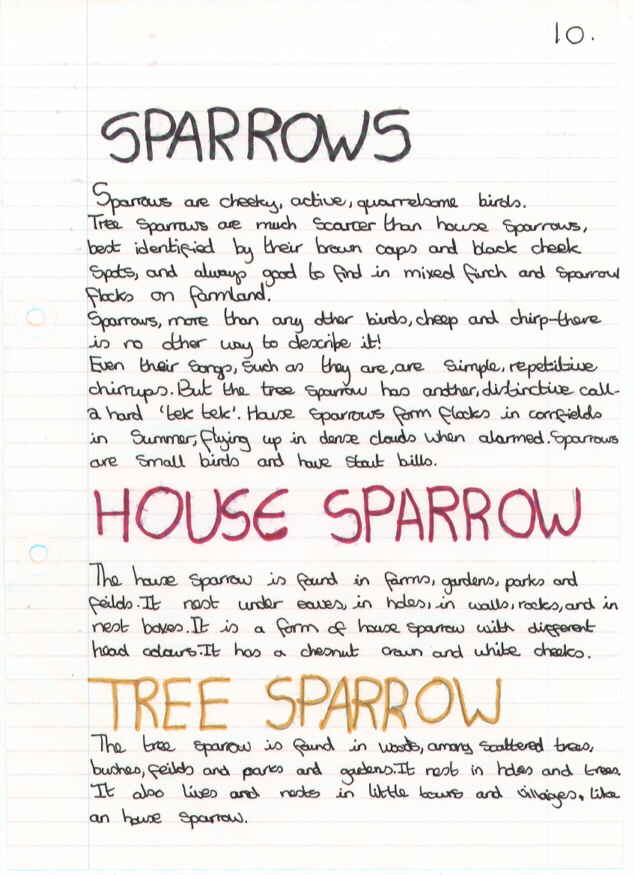 10.
SPARROWS
Sparrows are cheeky, active, quarrelsome birds.
Tree sparrows are much scarcer than house sparrows,
best identified by their brown caps and black cheek
spots, and always good to find in mixed finch and sparrow
flocks on farmland.
Sparrows, more than any other birds, cheep and chirp-there
is no other way to describe it!
Even their songs, such as they are, are simple, repetitive
chirrups. But the tree sparrow has another, distinctive call-
a hard 'tek tek'. House sparrows form flocks in cornfields
in summer, flying up in dense clouds when alarmed. Sparrows
are small birds and have stout bills.
HOUSE SPARROW
The house sparrow is found in farms, gardens, parks and
feilds. It nest under eaves, in holes, in walls, rocks, and in
nest boxes. It is a form of house sparrow with different
head colours. It has a chesnut crown and white cheeks.
TREE SPARROW
The tree sparrow is found in woods, among scattered trees,
bushes, feilds and parks and gardens. It nest in holes and trees.
It also lives and nests in little towns and villaiges, like
an house sparrow.